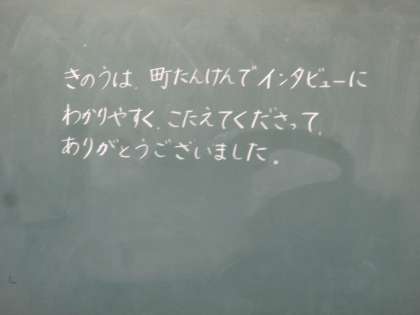 きのうは、町たんけんでインタビューに
わかりやすく、こたえてくださって、
ありがとうございました。